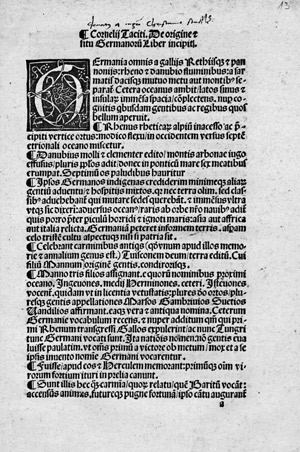 ¶ Cornelij Taciti. De origine et
situ Germanorū Liber incipit.
Germania omnis a gallijs Rethijsqꝫ et pan
nonijs: rheno et danubio fluminibus: a sar
matis dacisqꝫ mutuo metu aut montibꝰ se-
parat̉. Cetera oceanus ambit: latos sinus et
insularū immēsa spacia cōplectens, nup̱ co-
gnitis qbusdam gentibus ac regibus quos
bellum aperuit.
¶ Rhenus rheticarū alpiū inaccesso ac p̄-
cipiti vertice ortus: modico flexu in occidentem versus septē
trionali oceano miscetur.
¶ Danubius molli et clementer edito montis arbonae iugo
effusus: pluris p̱sos adit: donec in ponticū mare sex meatibus
erumpat. Septimū os paludibus hauritur
¶ Ipsos Germanos indigenas crediderim minimeqꝫ aliarū
gentiū aduentibꝰ et hospitijs mixtos. qꝛ nec terra olim, sed clas-
sibꝰ aduehebant̉ qui mutare sedes querebāt. et immēsus vltra
vtqꝫ sic dixerī: aduersus oceanꝰ raris ab orbe nr̄o nauibꝰ adit̉
quis porro p̱ter piculū horridi et ignoti maris: asia aut affrica
aut italia relicta. Germaniā peteret informem terris. asp̱am
celo tristē cultu aspectuqꝫ nisi si patria sit.
¶ Celebrant carminibus antiqs
et annalium genus est.) Tuisconem deum: terra editū. Cui
filiū Mannum originē gentis. conditorisqꝫ.
¶ Manno tris filios assignant. e quorū nominibus proximi
oceano. Ingeuones. medij Herminones. ceteri Isteuones.
vocent̉. quidam vt in licentia vetustatis: plures deo ortos. plu-
resqꝫ gentis appellationes Marsos Gambriuios Sueuos
Vandilios affirmant. eaqꝫ vera et antiqua nomina. Ceterum
Germanie vocabulum recens. et nuper additum qm̄ qui pri
mi Rhenum transgressi Gallos expulerint: ac nunc Tungri
tunc Germani vocati sunt. Ita natiōis nomē nō gentis eua
luisse paulatim. vt omēs primū a victore ob metum: mox et a se
ip̄sis inuento nomine Germani vocarentur.
¶ Fuisse apud eos et Herculem memorant: primūqꝫ oīm vi
rorum fortium ituri in prelia canunt.
¶ Sunt illis hec qqꝫ carmīa: quorꝫ relatu quē Baritū vocāt:
accensus animos, futureqꝫ pugne fortunā ip̄so cātu augurant̉
a